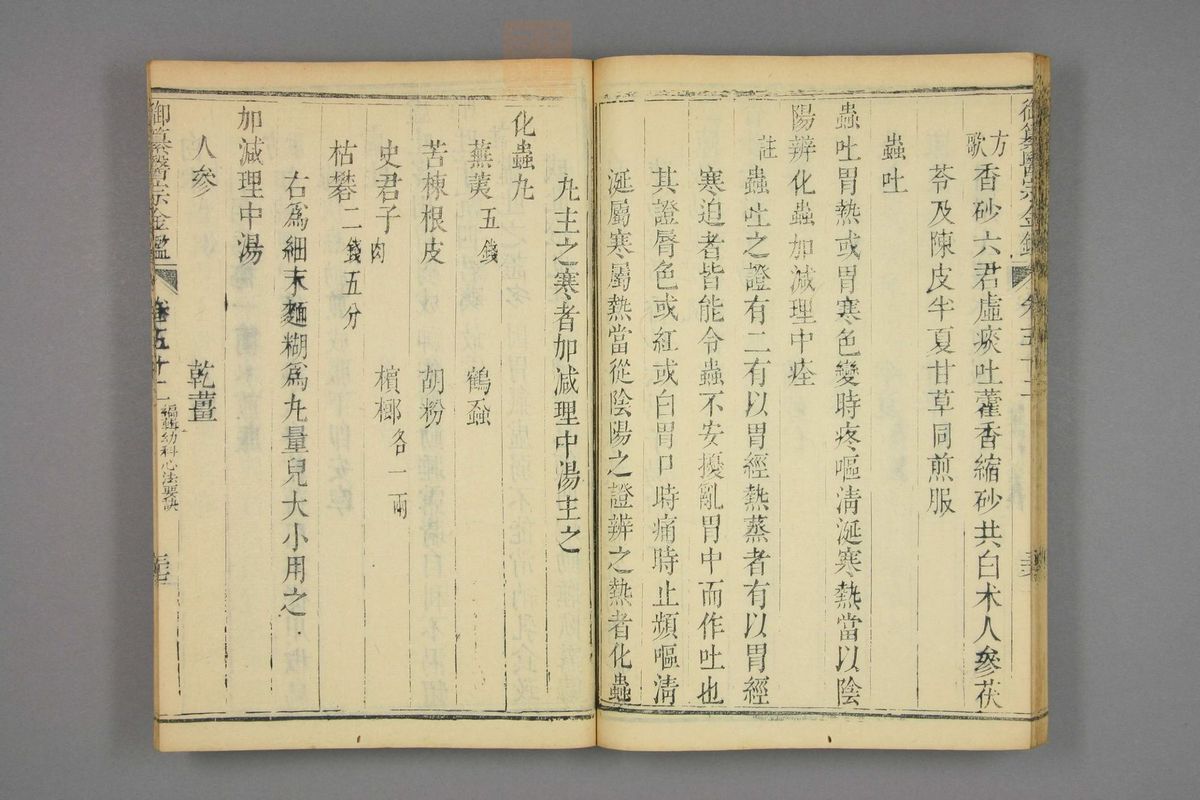 御纂醫宗金鑑 卷五十二
方歌 香砂六君虛痰吐藿香縮砂共白术人參茯
苓及陳皮半夏甘草同煎服
蟲吐
蟲吐胃熱或胃寒色變時疼嘔淸涎寒熱當以陰
陽辨化蟲加減理中痊
註 蟲吐之證有二有以胃經熱蒸者有以胃經
寒迫者皆能令蟲不安擾亂胃中而作吐也
其證脣色或紅或白胃口時痛時止頻嘔淸
涎屬寒屬熱當從陰陽之證辨之熱者化蟲
丸主之寒者加減理中湯主之
化蟲丸
蕪荑五錢 鶴蝨
苦楝根皮 胡粉
史君子肉 檳榔各一兩
枯礬二錢五分
右爲細末麵糊爲丸量兒大小用之
加減理中湯
人參 乾薑
御纂醫宗金鑑 卷五十二 編輯幼科心法要訣